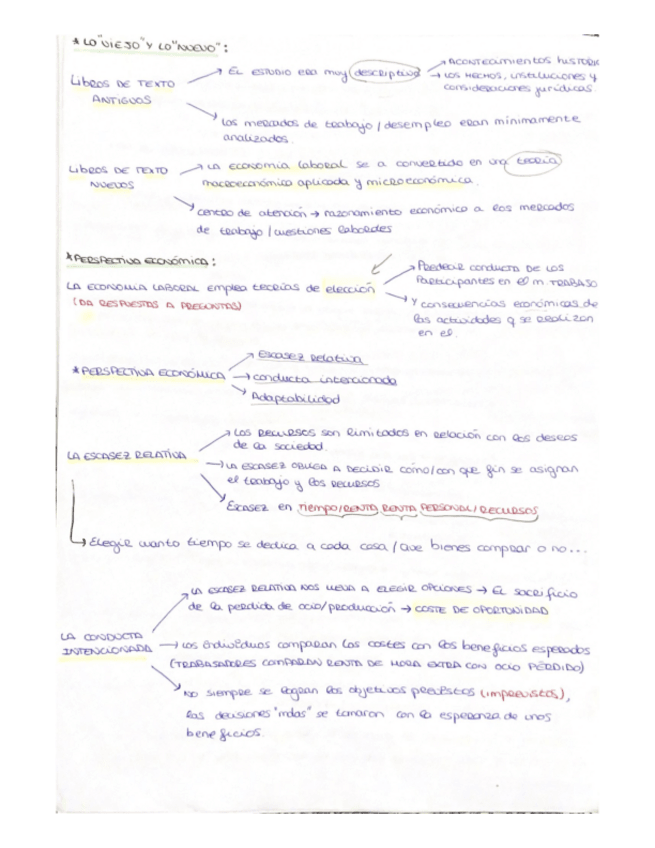 * LO "VIEJO" Y LO "NUEVO":
LIBROS DE TEXTO ANTIGUOS
→ EL ESTUDIO ERA muy descriptivo
→ ACONTECIMIENTOS HISTÓRIC
→ LOS HECHOS, instituciones y consideraciones jurídicas.
→ Los mercados de trabajo/desempleo eran mínimamente
analizados.
LIBROS DE TEXTO NUEVOS
→ LA economía laboral se a convertido en una teoría
macroeconómica aplicada y microeconómica.
→ centro de atención → razonamiento económico a los mercados
de trabajo/cuestiones laborales
* PERSPECTIVA ECONÓMICA:
LA ECONOMIA LABORAL emplea teorías de elección
(DA RESPUESTAS A PREGUNTAS)
→ Predecir conducta DE LOS
Participantes en el m. TRABAJO
→ Y consecuencias económicas de
las actividades q se realizan
en el.
* PERSPECTIVA ECONÓMICA
→ Escasez Relativa
→ conducta intencionada
→ Adaptabilidad
LA ESCASEZ RELATIVA
→ Los RECURSOS son limitados en relación con los deseos
de la sociedad.
→ LA ESCASEZ OBLIGA A DECIDIR cómo/con que fin se asignan
el trabajo y los recursos
→ Escasez en tiempo/RENTA RENTA PERSONAL/RECURSOS
→ Elegir cuanto tiempo se dedica a cada cosa/Que bienes comprar o no...
LA CONDUCTA
INTENCIONADA
→ LA ESCASEZ RELATIVA NOS LLEVA A ELEGIR OPCIONES → EL sacrificio
de la perdida de ocio/producción → COSTE DE OPORTUNIDAD
→ LOS individuos comparan los costes con los beneficios esperados
(TRABAJADORES COMPARAN RENTA DE HORA EXTRA CON OCIO PERDIDO)
→ NO siempre se logran los objetivos previstos (imprevistos),
las decisiones "malas" se tomaron con la esperanza de unos
beneficios.